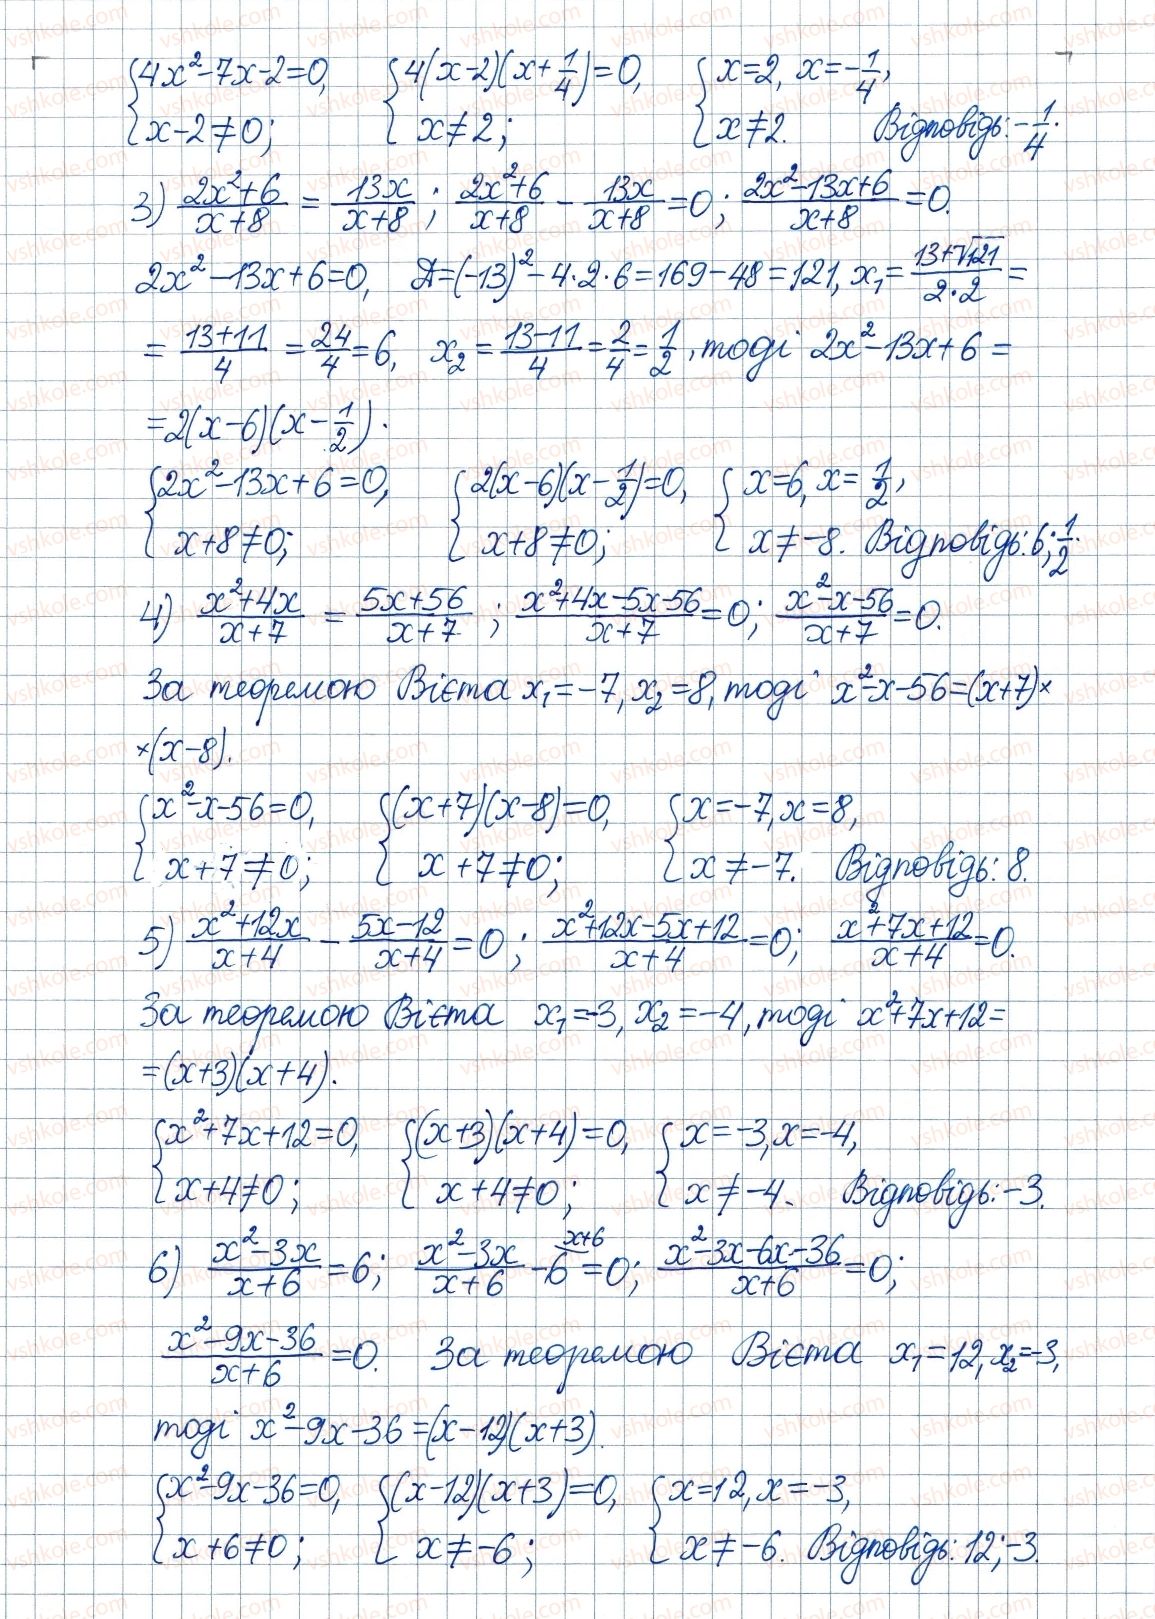 {4x²-7x-2=0, {4(x-2)(x+1/4)=0, {x=2, x=-1/4,
x-2≠0; x≠2; x≠2. Відповідь: -1/4.
3) (2x²+6)/(x+8) = 13x/(x+8); (2x²+6)/(x+8) - 13x/(x+8) =0; (2x²-13x+6)/(x+8) =0.
2x²-13x+6=0, Д=(-13)²-4·2·6=169-48=121, x₁=(13+√121)/(2·2) =
= (13+11)/4 = 24/4 =6, x₂ = (13-11)/4 = 2/4 = 1/2, тоді 2x²-13x+6=
=2(x-6)(x-1/2).
{2x²-13x+6=0, {2(x-6)(x-1/2)=0, {x=6, x=1/2,
x+8≠0; x+8≠0; x≠-8. Відповідь: 6; 1/2.
4) (x²+4x)/(x+7) = (5x+56)/(x+7); (x²+4x-5x-56)/(x+7) =0; (x²-x-56)/(x+7) =0.
За теоремою Вієта x₁=-7, x₂=8, тоді x²-x-56=(x+7)×
×(x-8).
{x²-x-56=0, {(x+7)(x-8)=0, {x=-7, x=8,
x+7≠0; x+7≠0; x≠-7. Відповідь: 8.
5) (x²+12x)/(x+4) - (5x-12)/(x+4) =0; (x²+12x-5x+12)/(x+4) =0; (x²+7x+12)/(x+4) =0.
За теоремою Вієта x₁=-3, x₂=-4, тоді x²+7x+12=
=(x+3)(x+4).
{x²+7x+12=0, {(x+3)(x+4)=0, {x=-3, x=-4,
x+4≠0; x+4≠0; x≠-4. Відповідь: -3.
6) (x²-3x)/(x+6) =6; (x²-3x)/(x+6) -6 ^(x+6) =0; (x²-3x-6x-36)/(x+6) =0;
(x²-9x-36)/(x+6) =0. За теоремою Вієта x₁=12, x₂=-3,
тоді x²-9x-36=(x-12)(x+3).
{x²-9x-36=0, {(x-12)(x+3)=0, {x=12, x=-3,
x+6≠0; x≠-6; x≠-6. Відповідь: 12; -3.
vshkole.com